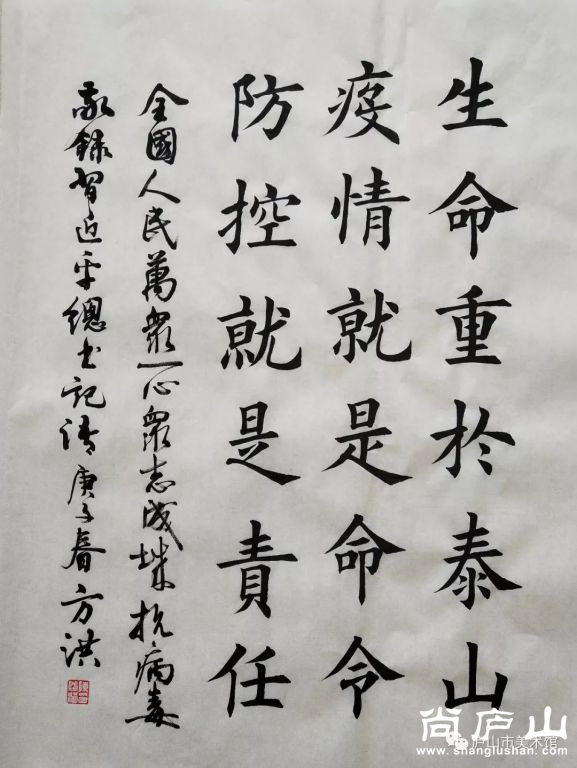 生命重於泰山
疫情就是命令
防控就是責任
全國人民萬衆一心衆志成城抗病毒
敬録習近平總書記語庚子春方洪
尚庐山
庐山市美术馆
www.shanglushan.com